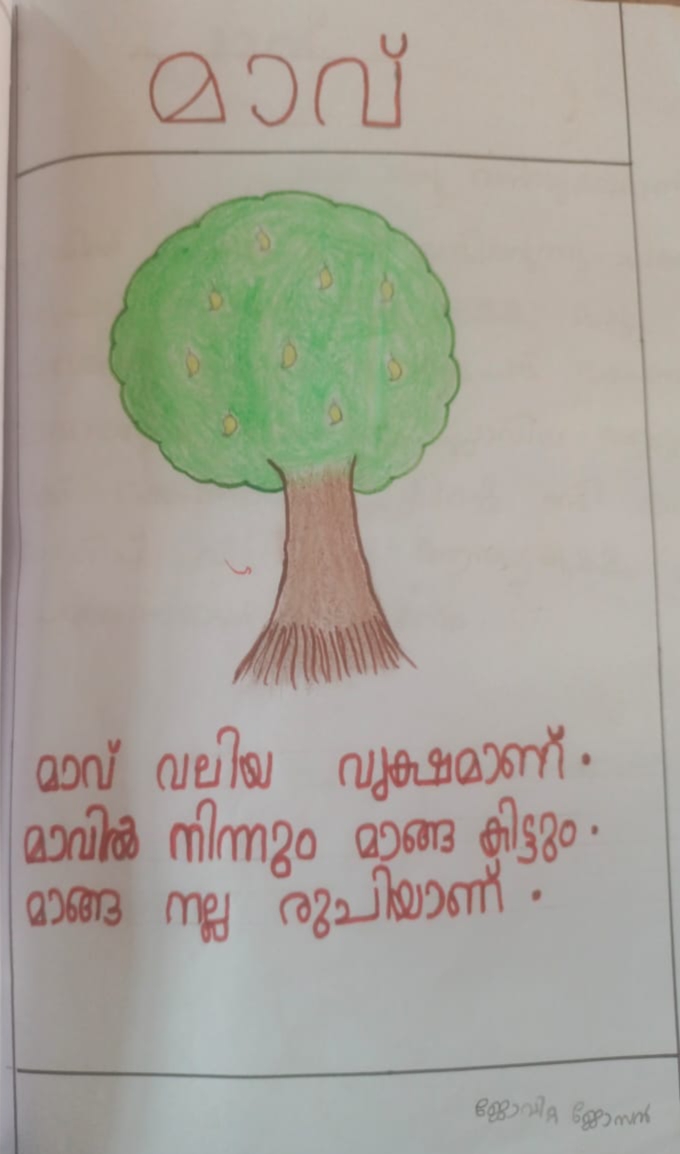 മാവ്
മാവ് വലിയ വൃക്ഷമാണ്.
മാവിൽ നിന്നും മാങ്ങ കിട്ടും.
മാങ്ങ നല്ല രുചിയാണ്.